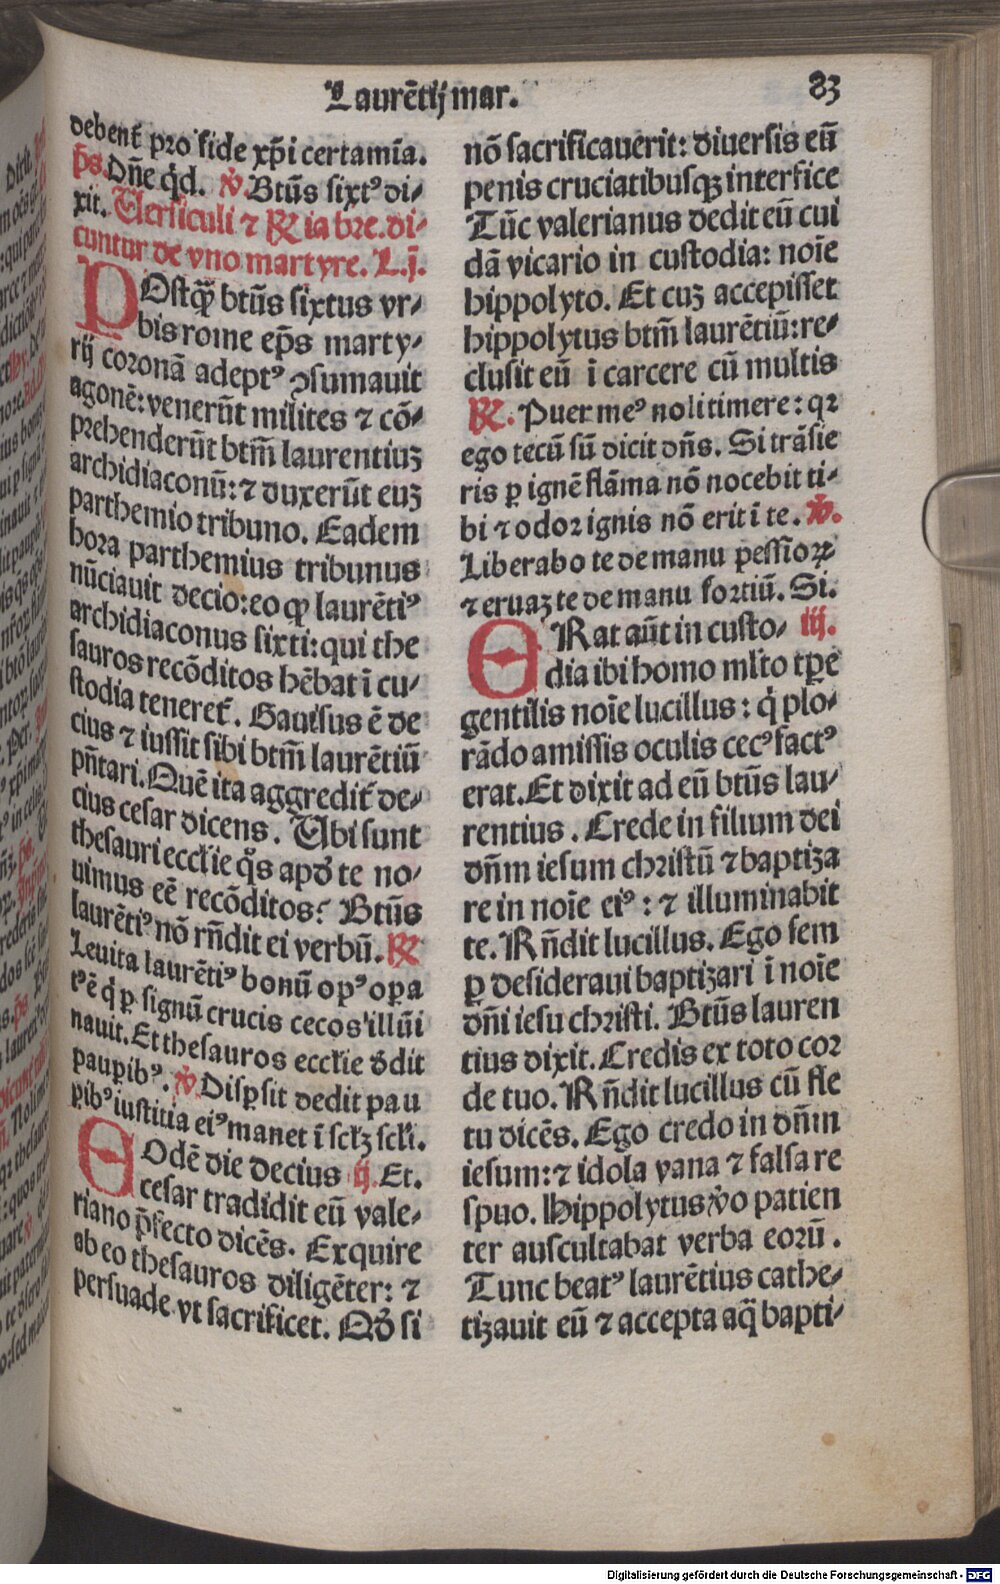 Laurētij mar.
83
debent᷑ pro fide xp̄i certamīa.
p̄s. Dn̄e q̇d. v̇. Btūs sixtꝰ di-
xit. Uersiculi ⁊ ꝶ ia bre. di-
cuntur de vno martyre. L.j.
POstqꝫ̄ btūs sixtus vr-
bis rome ep̄s marty-
rij coronā adeptꝰ ꝯsumauit
agonē: venerūt milites ⁊ cō-
prehenderūt btm̄ laurentiuꝫ
archidiaconū: ⁊ duxerūt euꝫ
parthemio tribuno. Eadem
hora parthemius tribunus
nūciauit decio: eo ꝙ laurētiꝰ
archidiaconus sixti: qui the
sauros recōditos hēbat ī cu-
stodia teneret᷑. Gauisus ē de
cius ⁊ iussit sibi btm̄ laurētiū
pn̄tari. Quē ita aggredit᷑ de-
cius cesar dicens. Ubi sunt
thesauri eccl̄ie q̊s apd̓ te no-
uimus eē recōditos? Btūs
laurētiꝰ nō rn̄dit ei verbū. ꝶ
Leuita laurētiꝰ bonū opꝰ oꝑa
tꝰ ē q̇ ꝑ signū crucis cecos illūi
nauit. Et thesauros eccl̄ie dedit
pauꝑibꝰ. v̇. Disꝑsit dedit pau
ꝑibꝰ iustitia eiꝰ manet ī scl̄ꝫ scl̄i.
EOdē die decius ij. Et.
cesar tradidit eū vale-
riano p̄fecto dicēs. Exquire
ab eo thesauros diligēter: ⁊
persuade vt sacrificet. Qd̓ si
nō sacrificauerit: diuersis eū
penis cruciatibusqꝫ interfice
Tūc valerianus dedit eū cui
dā vicario in custodia: noīe
hippolyto. Et cuꝫ accepisset
hippolytus btm̄ laurētiū: re-
clusit eū ī carcere cū multis
ꝶ. Puer meꝰ noli timere: qꝛ
ego tecū sū dicit dn̄s. Si trāsie
ris ꝑ ignē flāma nō nocebit ti-
bi ⁊ odor ignis nō erit ī te. v̇.
Liberabo te de manu pessioꝝ
⁊ eruaꝫ te de manu fortiū. Si.
ERat aūt in custo- iij.
dia ibi homo ml̄to tꝑe
gentilis noīe lucillus: q̇ plo-
rādo amissis oculis cecꝰ factꝰ
erat. Et dixit ad eū btūs lau-
rentius. Crede in filium dei
dn̄m iesum christū ⁊ baptiza
re in noīe eiꝰ: ⁊ illuminabit
te. Rn̄dit lucillus. Ego sem
ꝑ desideraui baptizari ī noīe
dn̄i iesu christi. Btūs lauren
tius dixit. Credis ex toto cor
de tuo. Rn̄dit lucillus cū fle
tu dicēs. Ego credo in dn̄m
iesum: ⁊ idola vana ⁊ falsa re
spuo. Hippolytus v̊o patien
ter auscultabat verba eorū.
Tunc beatꝰ laurētius cathe-
tizauit eū ⁊ accepta aq̄ bapti-
Digitalisierung gefördert durch die Deutsche Forschungsgemeinschaft - DFG